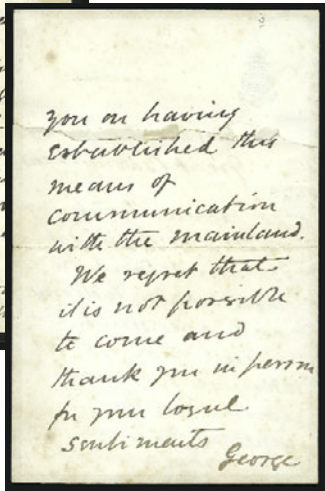 you on having
established this
means of
communication
with the mainland.
We regret that
it is not possible
to come and
thank you in person
for your loyal
sentiments
George